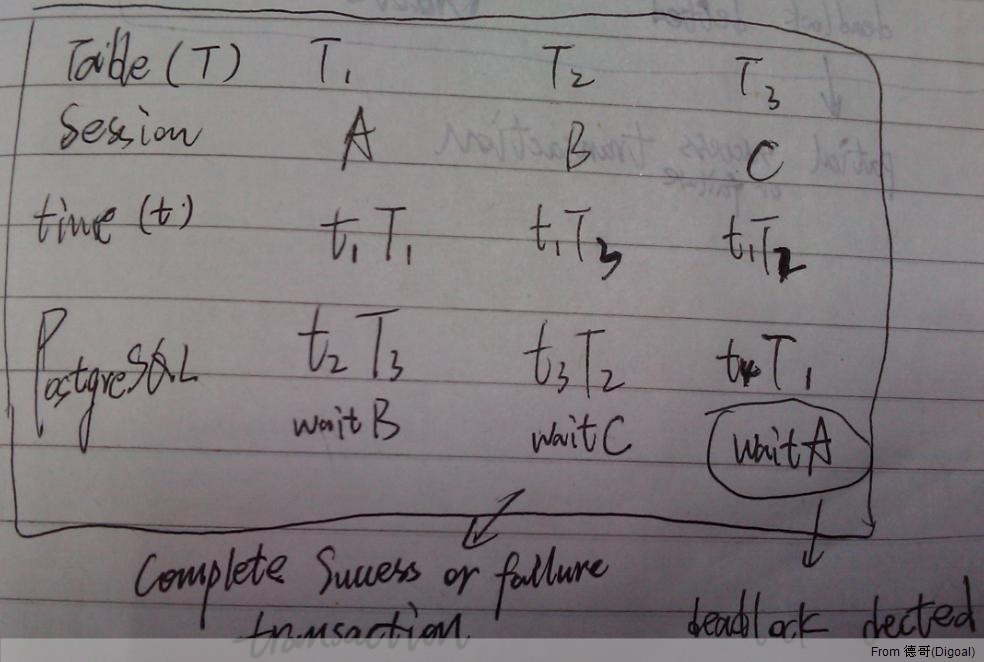 Table (T) T1 T2 T3
Session A B C
time (t) t1 T1 t1 T3 t1 T2
PostgreSQL t2 T3 t3 T2 t4 T1
wait B wait C wait A
Complete Success or failure
transaction
deadlock dected
From 德哥(Digoal)